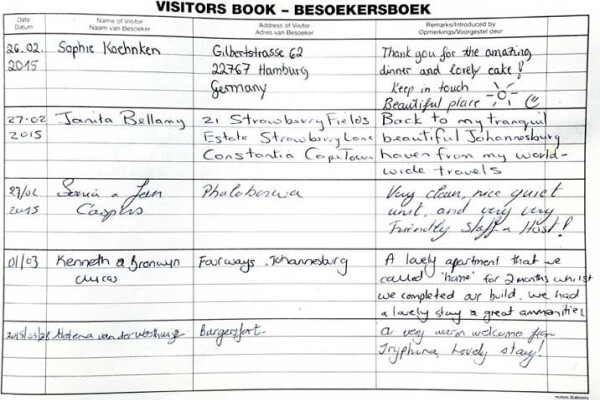 VISITORS BOOK – BESOEKERSBOEK
Date
Datum
Name of Visitor
Naam van Besoeker
Address of Visitor
Adres van Besoeker
Remarks/Introduced by
Opmerkings/Voorgestel deur
26.02.
2015
Sophie Koehnken
Gilbertstrasse 62
22767 Hamburg
Germany
Thank you for the amazing
dinner and lovely cake!
Keep in touch
Beautiful place
27-02
2015
Janita Bellamy
21 Strawberry Fields
Estate Strawberry Lane
Constantia CapeTown
Back to my tranquil
beautiful Johannesburg
haven from my world-
wide travels
27/02
2015
Phalaborwa
Very clean, nice quiet
unit, and very very
friendly staff & Host!
01/03
Kenneth & Bronwyn
Fourways, Johannesburg
A lovely apartment that we
called "home" for 2 months whilst
we completed our build. We had
a lovely stay & great ammenities
van der
Burgersfort
a very warm welcome from
Tryphina, Lovely stay!